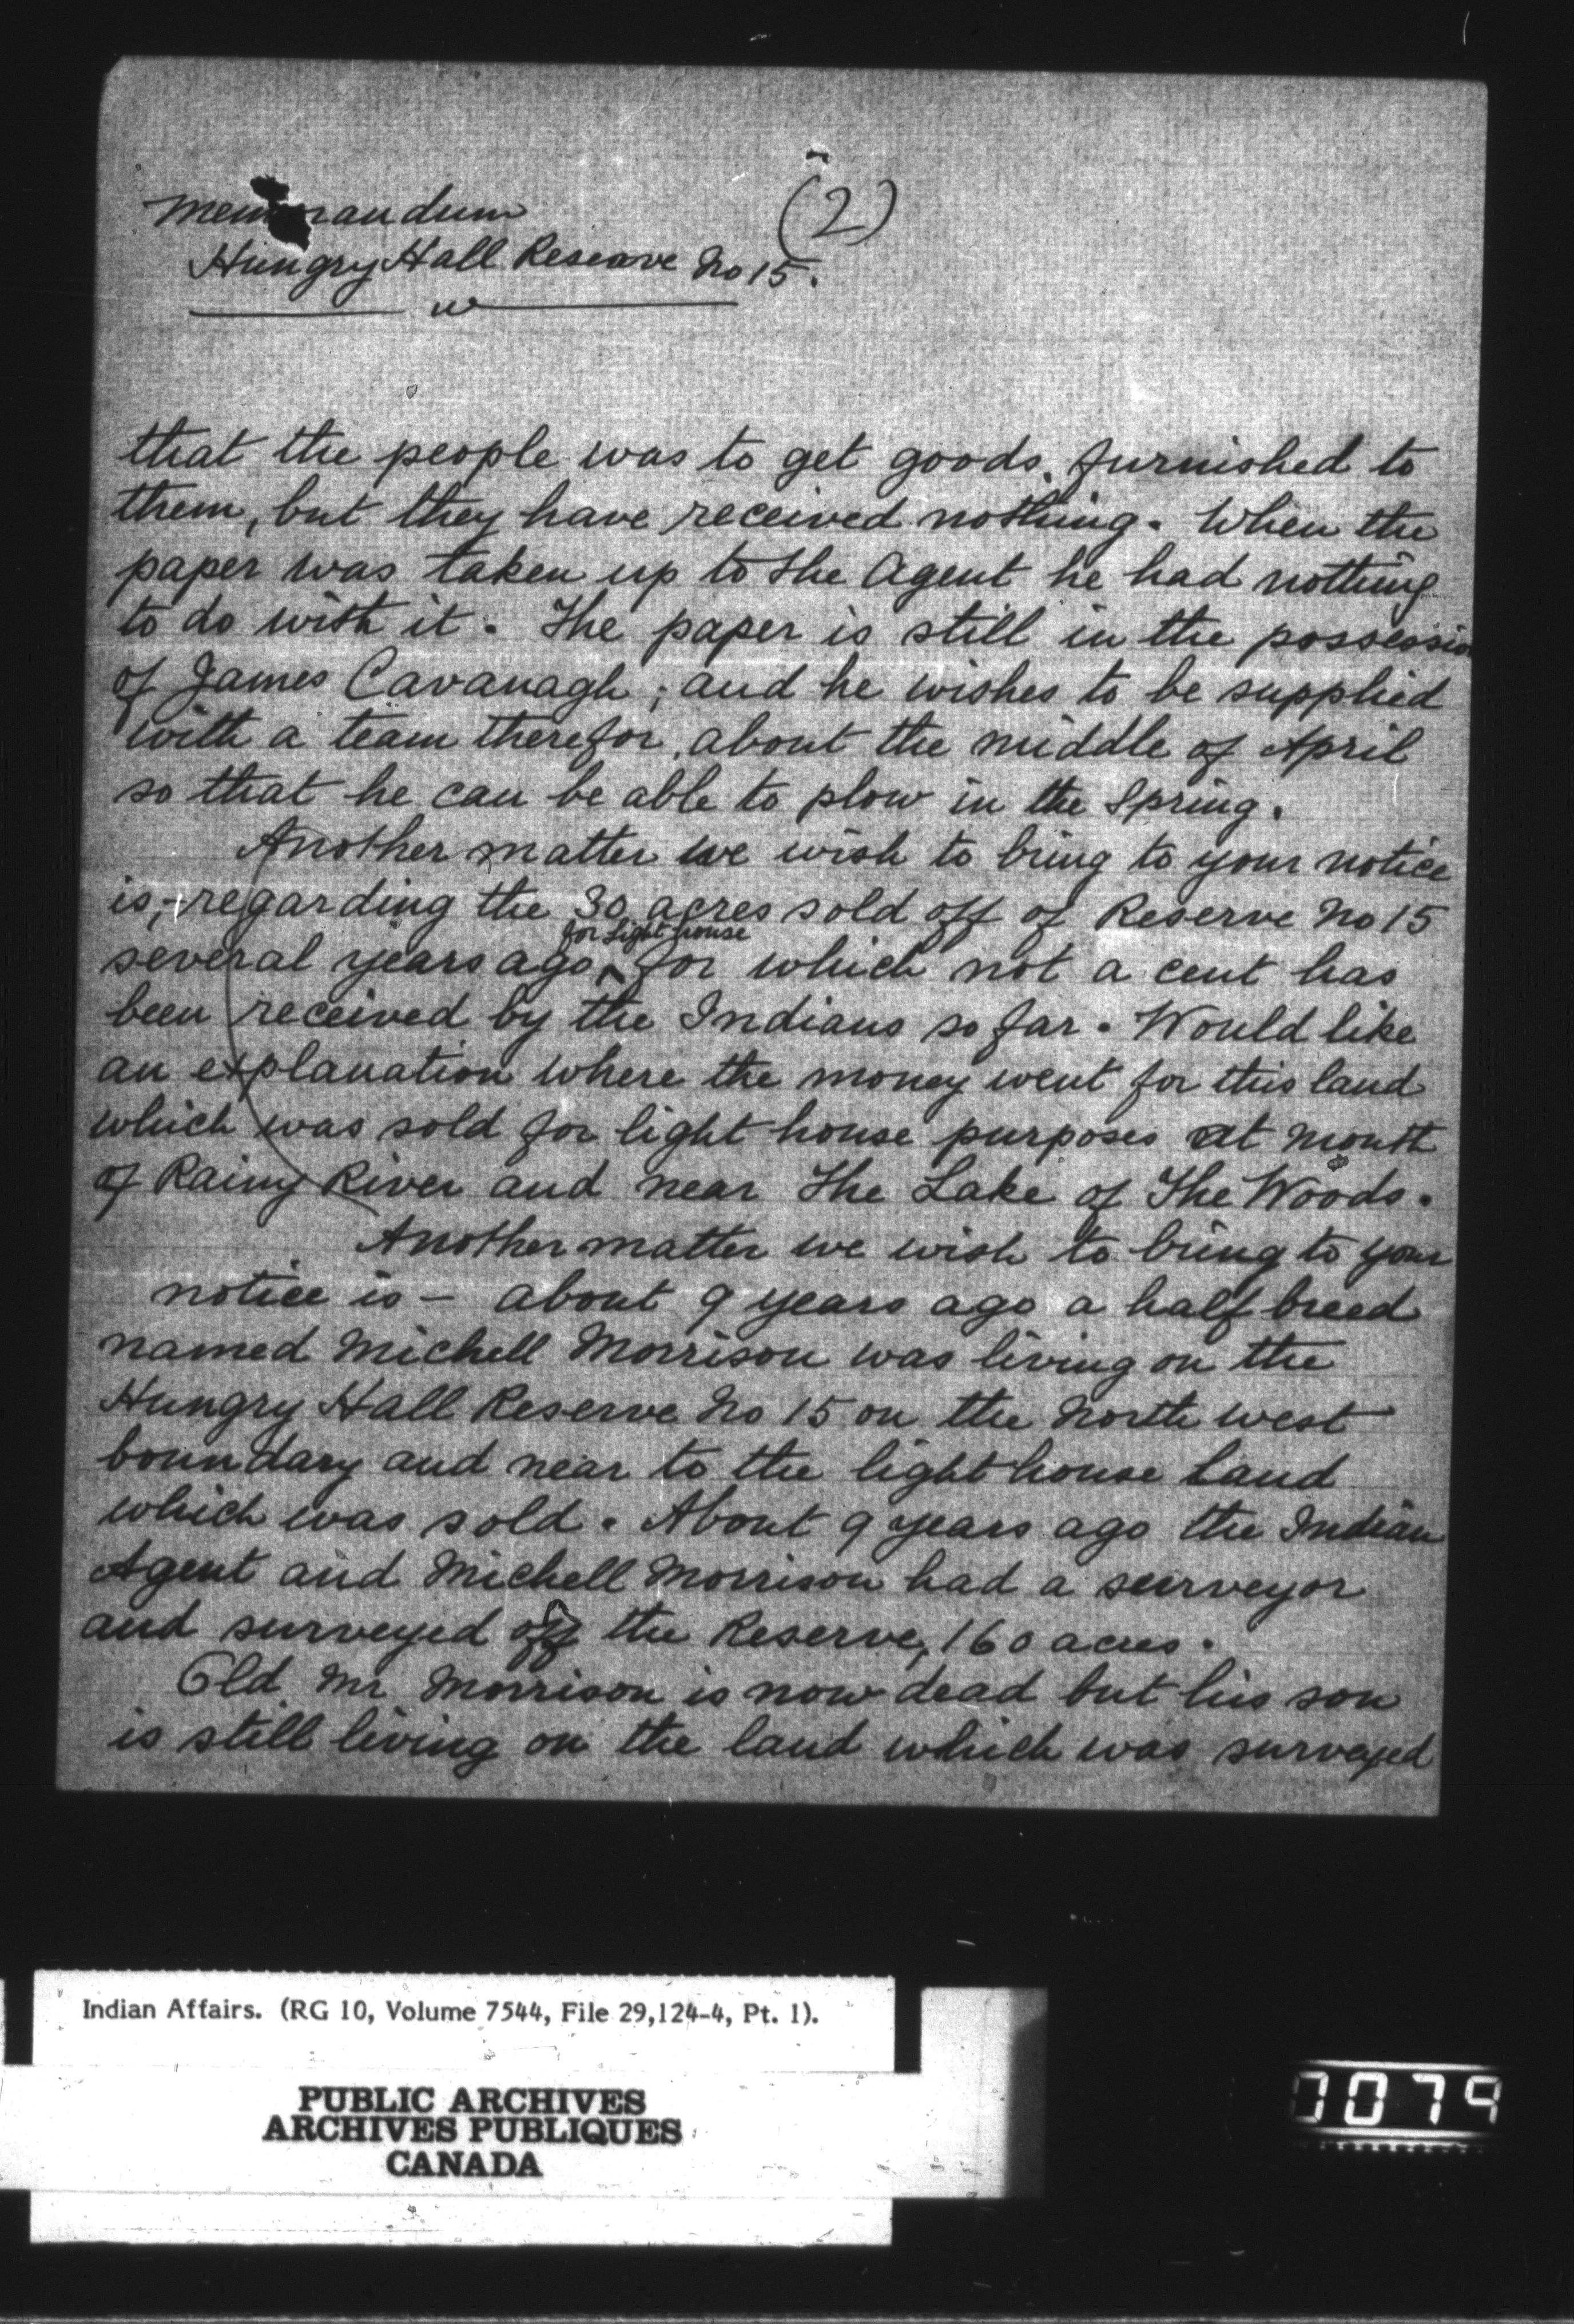 (2)
Memorandum
Hungry Hall Reserve No 15.
that the people was to get goods, furnished to
them, but they have received nothing. When the
paper was taken up to the Agent he had nothing
to do with it. The paper is still in the possession
of James Cavanagh; and he wishes to be supplied
with a team therefor, about the middle of April
so that he can be able to plow in the Spring.
Another matter we wish to bring to your notice
is,- regarding the 30 acres sold off of Reserve No 15
for Light house
several years ago ^ for which not a cent has
been received by the Indians so far. Would like
an explanation where the money went for this land
which was sold for light house purposes at mouth
of Rainy River and near The Lake of The Woods.
Another matter we wish to bring to your
notice is - about 9 years ago a half breed
named Michell Morrison was living on the
Hungry Hall Reserve No 15 on the North west
boundary and near to the light house land
which was sold. About 9 years ago the Indian
Agent and Michell Morrison had a surveyor
and surveyed off the Reserve, 160 acres.
Old Mr. Morrison is now dead but his son
is still living on the land which was surveyed
Indian Affairs. (RG 10, Volume 7544, File 29,124-4, Pt. 1).
PUBLIC ARCHIVES
ARCHIVES PUBLIQUES
CANADA
0079